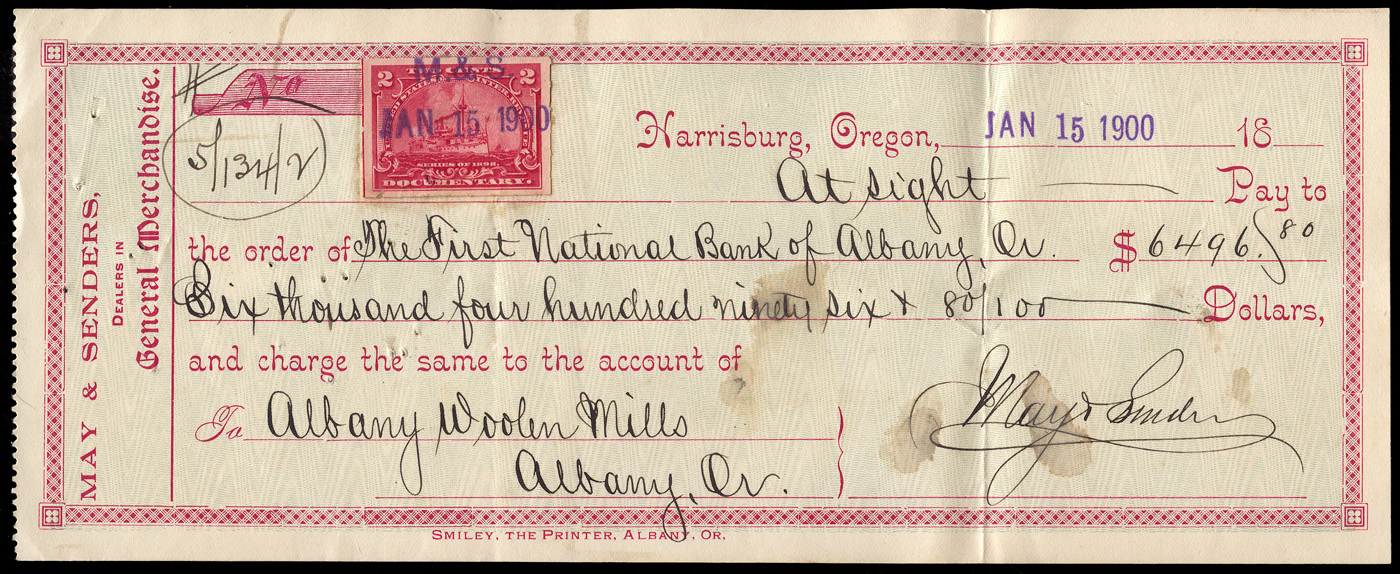 MAY & SENDERS,
DEALERS IN
General Merchandise.
No
5/134/2
TWO CENTS
2 2
UNITED STATES INTER. REVENUE
SERIES OF 1898.
DOCUMENTARY.
M. & S.
JAN 15 1900
Harrisburg, Oregon, JAN 15 1900 18
At sight Pay to
the order of The First National Bank of Albany, Or. $6496.80
Six thousand four hundred ninety six & 80/100 Dollars,
and charge the same to the account of
To Albany Woolen Mills
Albany, Or.
May & Senders
SMILEY, THE PRINTER, ALBANY, OR.